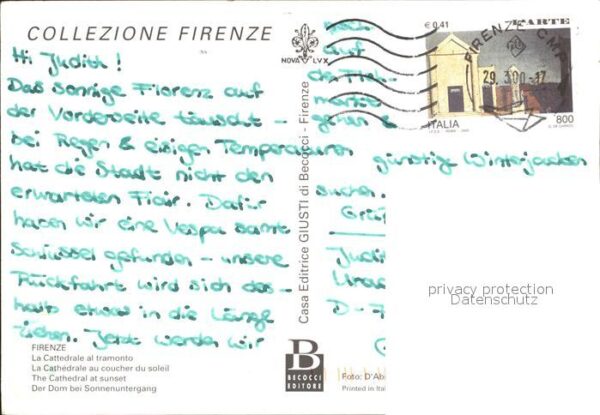 COLLEZIONE FIRENZE
Hi Judith!
Das sonnige Florenz auf
der Vorderseite täuscht -
bei Regen & eisigen Temperaturen
hat die Stadt nicht den
erwarteten Flair. Dafür
haben wir eine Vespa samt
Schlüssel gefunden - unsere
Rückfahrt wird sich des-
halb etwas in die Länge
ziehen. Jetzt werden wir
FIRENZE
La Cattedrale al tramonto
La Cathédrale au coucher du soleil
The Cathedral at sunset
Der Dom bei Sonnenuntergang
NOVA LVX
Casa Editrice GIUSTI di Becocci - Firenze
B
BECOCCI
EDITORE
auf
günstig Winterjacken
suchen.
Judit
D - 7
Foto: D'Ab
Printed in Ital
€ 0,41
L'ARTE
FIRENZE CMP
29.3.00-17
ITALIA
800
privacy protection
Datenschutz